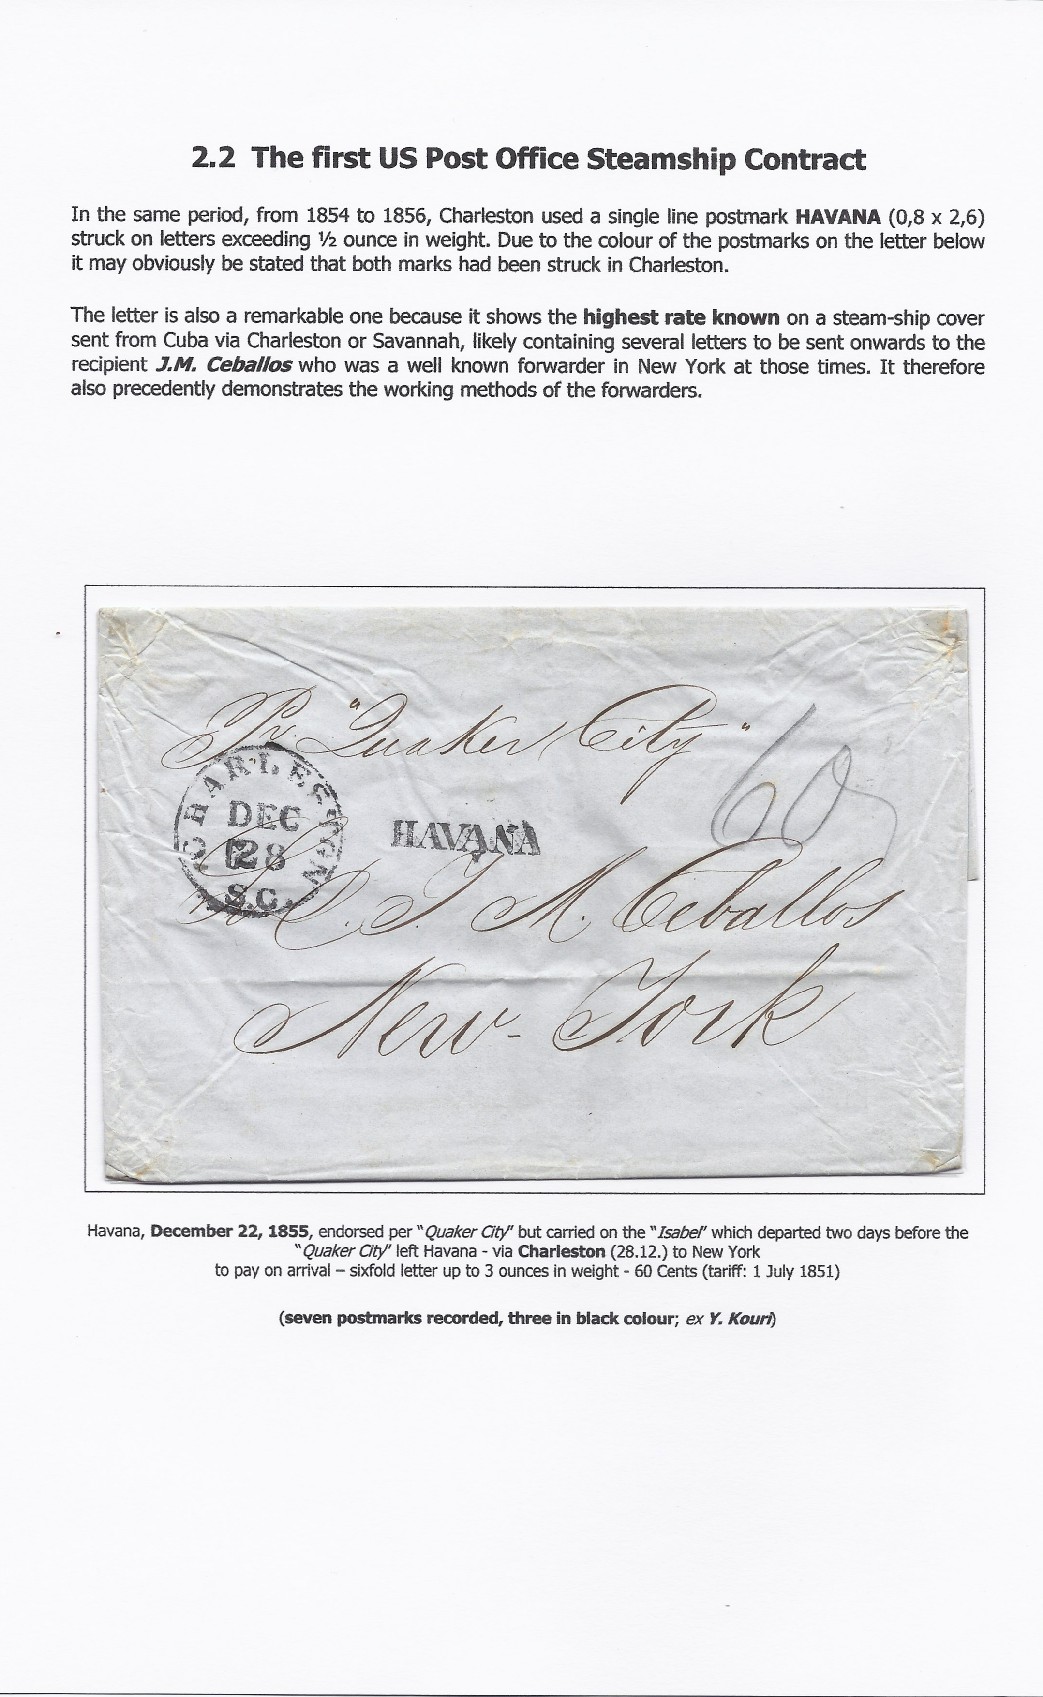 2.2 The first US Post Office Steamship Contract
In the same period, from 1854 to 1856, Charleston used a single line postmark HAVANA (0,8 x 2,6)
struck on letters exceeding ½ ounce in weight. Due to the colour of the postmarks on the letter below
it may obviously be stated that both marks had been struck in Charleston.
The letter is also a remarkable one because it shows the highest rate known on a steam-ship cover
sent from Cuba via Charleston or Savannah, likely containing several letters to be sent onwards to the
recipient J.M. Ceballos who was a well known forwarder in New York at those times. It therefore
also precedently demonstrates the working methods of the forwarders.
Pr. "Quaker City"
60
CHARLESTON
DEC
28
S.C.
HAVANA
J. M. Ceballos
New-York
Havana, December 22, 1855, endorsed per "Quaker City" but carried on the "Isabel" which departed two days before the
"Quaker City" left Havana - via Charleston (28.12.) to New York
to pay on arrival – sixfold letter up to 3 ounces in weight - 60 Cents (tariff: 1 July 1851)
(seven postmarks recorded, three in black colour; ex Y. Kouri)